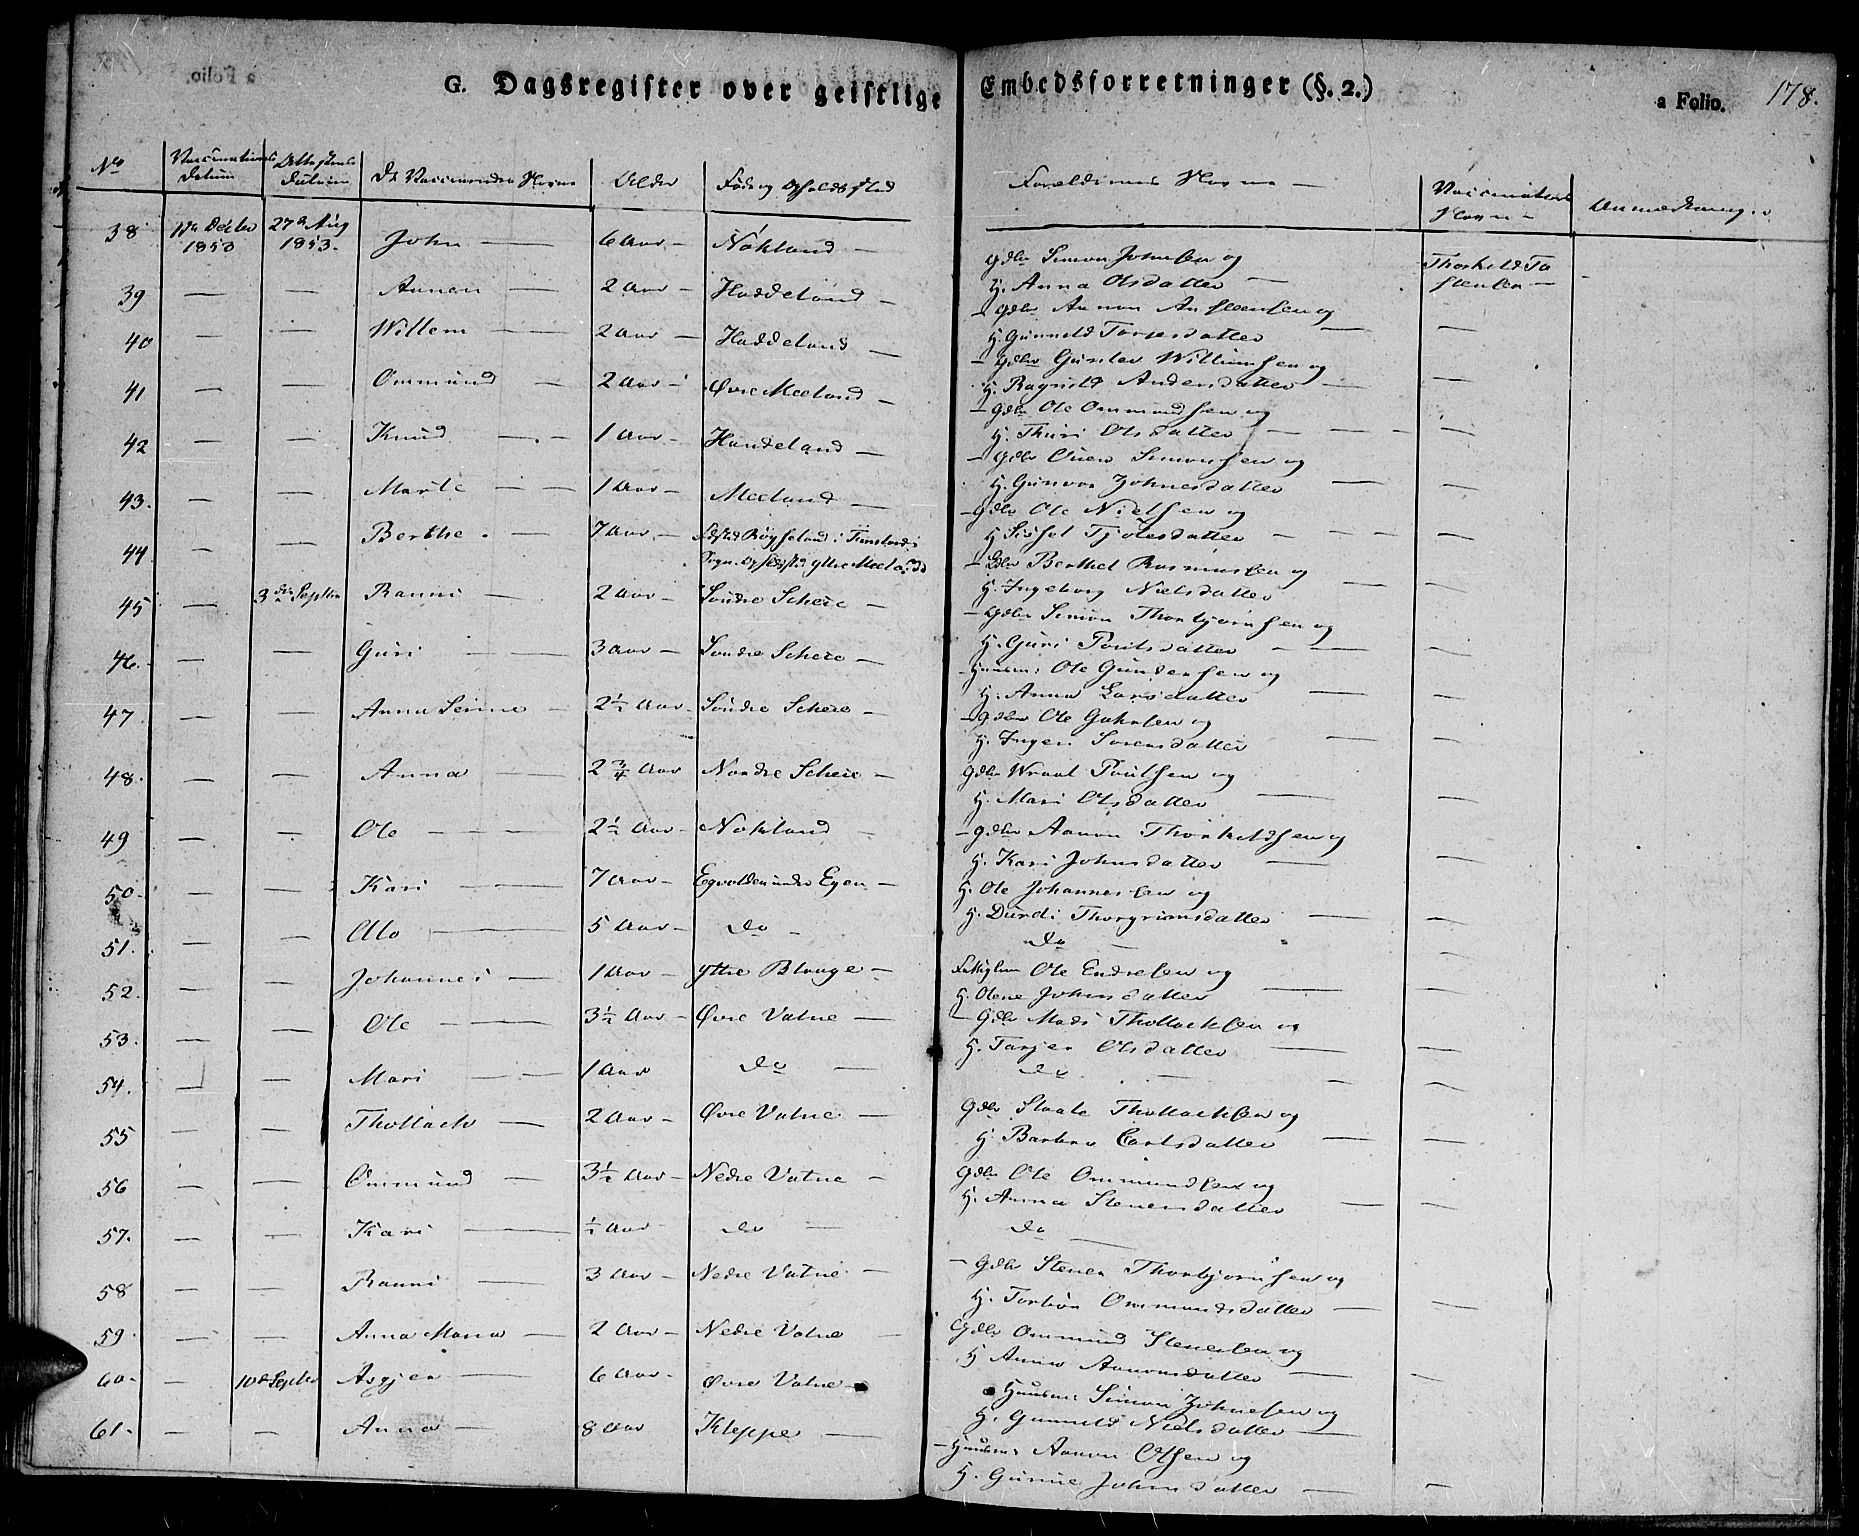 G. Dagsregister over geistlige Embedsforretninger (§. 2.)
a Folio. 178.
No Vaccinations Datum Attestens Datum De Vaccineredes Navne Alder Føde og Opholds Sted Forældrenes Navne Vaccinateurens Navn Anmærkninger
38 1853 27de Aug 1853. John 6 Aar Nökland Gdbr Simon Johnsen og
H. Anna Olsdatter
39 — — Aanen 2 Aar Haddeland Gdbr Aanon og
H. Gunneld Torjesdatter
40 — — Willem 2 Aar Haddeland Gdbr Gunder Willumsen og
H. Ragnild Andersdatter
41 — — Ommund 2 Aar Øvre Meeland Gdbr Ole Ommundsen og
H. Thuri Olsdatter
42 — — Knud 1 Aar Haadeland Gdbr Simonsen og
H. Gunvor Johnesdatter
43. — — Marte 1 Aar Meeland Gdbr Ole Nielsen og
H. Sissel
44 — — Berthe 7 Aar Fødested Röyseland i Finslands
Sogn. Opholdssted ytre Meeland Gdbr Berthel Rasmussen og
H. Ingeborg Nielsdatter
45 — 3die Septbr Ranni 2 Aar Söndre Scheie Gdbr Simon Thorbjörnsen og
H. Guri Poulsdatter
46. — — Guri 3 Aar Söndre Scheie Huusm: Ole Gundersen og
H. Anna Larsdatter
47 — — Anna Serine 2½ Aar Söndre Scheie Gdbr Ole og
H. Inger Sörensdatter
48. — — Anna 2¾ Aar Nordre Scheie Gdbr Wraal Poulsen og
H. Mari Olsdatter
49 — — Ole 2½ Aar Nökland Gdbr Aanon Thorkildsen og
H. Kari Johnsdatter
50. — — Kari 7 Aar under Egen H. Ole Johannessen og
H. Durdi Thorgrimsdatter
51. — — Olo 5 Aar do do
52. — — Johannes 1 Aar Ytre Ole Endresen og
H. Olene Johnsdatter
53. — Ole 3½ Aar Øvre Vatne Gdbr Mads Thollacksen og
H. Tarjer Olsdatter
54. — — Mari 1 Aar do do
55 — — Thollack 2 Aar Øvre Vatne Gdbr Thollacksen og
H. Barbro Carlsdatter
56 — — Ommund 3½ Aar Nedre Vatne Gdbr Ole Ommundsen og
H. Anna Stenersdatter
57. — — Kari ½ Aar do do
58 — — Ranni 3 Aar Nedre Vatne Gdbr Stener Thorbjörnsen og
H. Torbör Ommundsdatter
59 — — Anna Maria 2 Aar Nedre Vatne Gdbr Ommund Stenersen og
H. Anne Aanonsdatter
60. — 10de Septbr Asgjer 6 Aar Øvre Vatne Huusm: Simon Johnesen og
H. Gunneld Nielsdatter
61. — — Anna 8 Aar Kleppe Huusm: Aanon Olsen og
H. Gunnie Johnsdatter